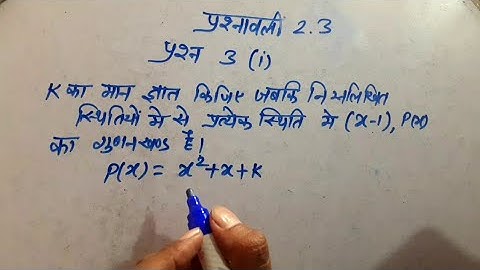 प्रश्नावली 2.3
प्रश्न 3 (i)
K का मान ज्ञात किजिए जबकि निम्नलिखित
स्थितियों में से प्रत्येक स्थिति में (x-1), P(x)
का गुणनखण्ड है।
P(x) = x²+x+K